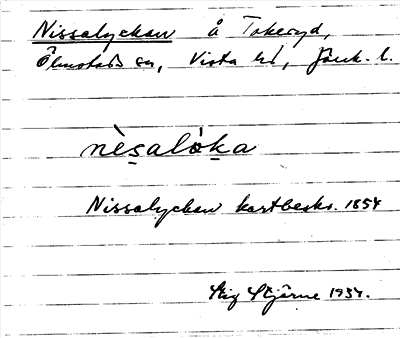 Nissalyckan å Tokeryd,
Ölmstads sn, Vista hd, Jönk. l.
nèsalòka
Nissalyckan kartbeskr. 1854
Stig Stjärne 1934.